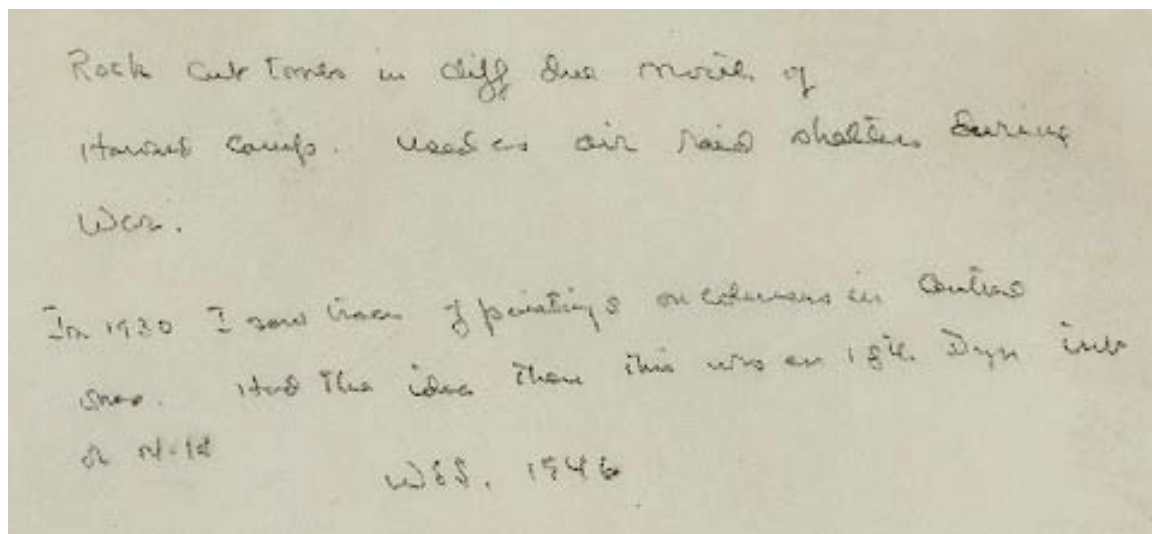 Rock cut Tombs in cliff due north of
Harvard Camp. Used as air raid shelters during
War.
In 1930 I saw traces of paintings on columns in central
ones. Had the idea then this was an 18th. Dyn
or
WSS. 1946